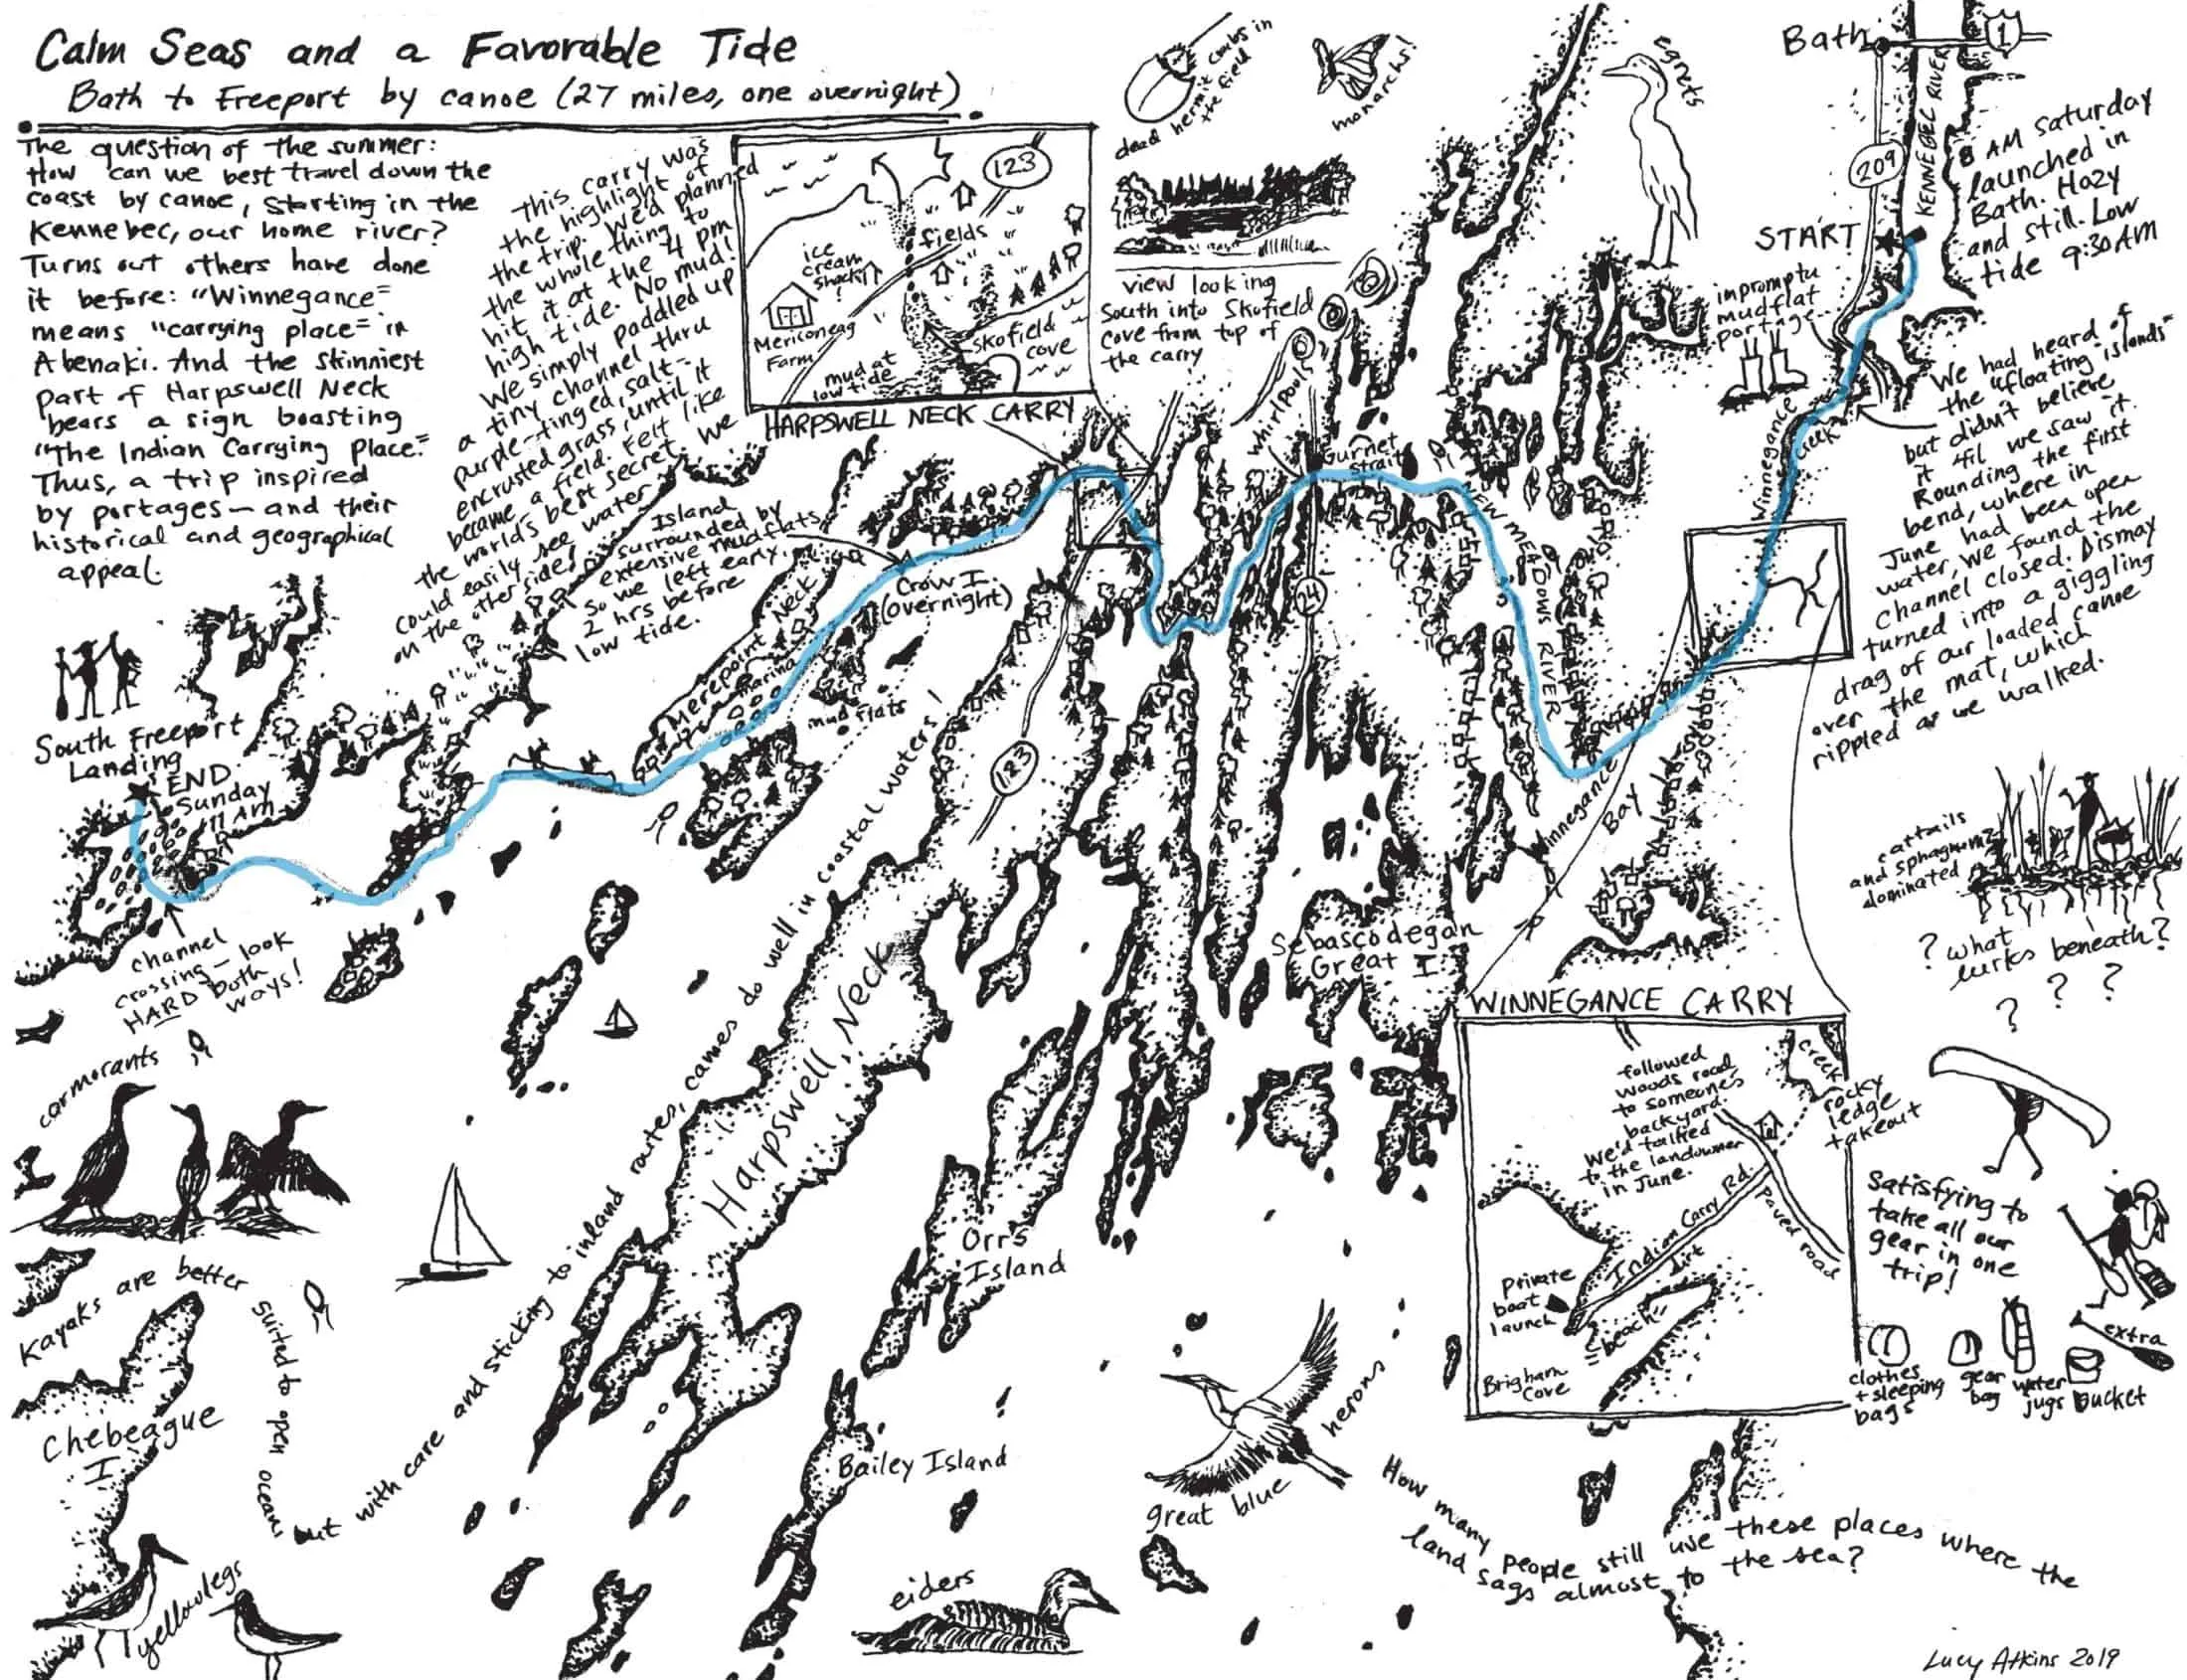 Calm Seas and a Favorable Tide
Bath to Freeport by canoe (27 miles, one overnight)
The question of the summer:
How can we best travel down the
coast by canoe, starting in the
Kennebec, our home river?
Turns out others have done
it before: "Winnegance"
means "carrying place" in
Abenaki. And the skinniest
part of Harpswell Neck
bears a sign boasting
"The Indian Carrying Place."
Thus, a trip inspired
by portages — and their
historical and geographical
appeal.
This carry was
the highlight of
the trip. We'd planned
the whole thing to
hit it at the 4 pm
high tide. No mud!
We simply paddled up
a tiny channel thru
purple-tinged, salt-
encrusted grass, until it
became a field. Felt like
the world's best secret. We
could easily see water
on the other side!
123
fields
ice
cream
shack!
Mericoneag
Farm
mud at
low tide
Skofield
cove
HARPSWELL NECK CARRY
dead hermit crabs in
the field
monarchs!
view looking
South into Skofield
Cove from top of
the carry
egrets
whirlpools
Gurnet
Strait
Bath
1
KENNEBEC RIVER
209
START
8 AM Saturday
launched in
Bath. Hazy
and still. Low
tide 9:30 AM
impromptu
mudflat
portage
Winnegance
Creek
We had heard of
the "floating islands"
but didn't believe
it 'til we saw it.
Rounding the first
bend, where in
June had been open
water, we found the
channel closed. Dismay
turned into a giggling
drag of our loaded canoe
over the mat, which
rippled as we walked.
Island
surrounded by
extensive mudflats,
so we left early,
2 hrs before
low tide.
Crow I
(overnight)
Merepoint Neck
marina
mud flats
NEW MEADOWS RIVER
24
123
Winnegance
Bay
South Freeport
Landing
END
Sunday
11 AM
channel
crossing — look
HARD both
ways!
cattails
and sphagnum
dominated
? what
lurks beneath?
? ? ?
Sebascodegan
Great I.
Harpswell Neck
Orrs
Island
Bailey Island
Chebeague
I
WINNEGANCE CARRY
followed
woods road
to someone's
backyard.
We'd talked
to the landowner
in June.
creek
rocky
ledge
takeout
Indian Carry Rd.
dirt
paved road
private
boat
launch
"beach"
Brigham
Cove
Satisfying to
take all our
gear in one
trip!
extra
clothes
+ sleeping
bags
gear
bag
water
jugs
bucket
cormorants
Kayaks are better suited to open ocean, but with care and sticking to inland routes, canoes do well in coastal waters!
yellowlegs
eiders
great blue herons
How many people still use these places where the
land sags almost to the sea?
Lucy Atkins 2019